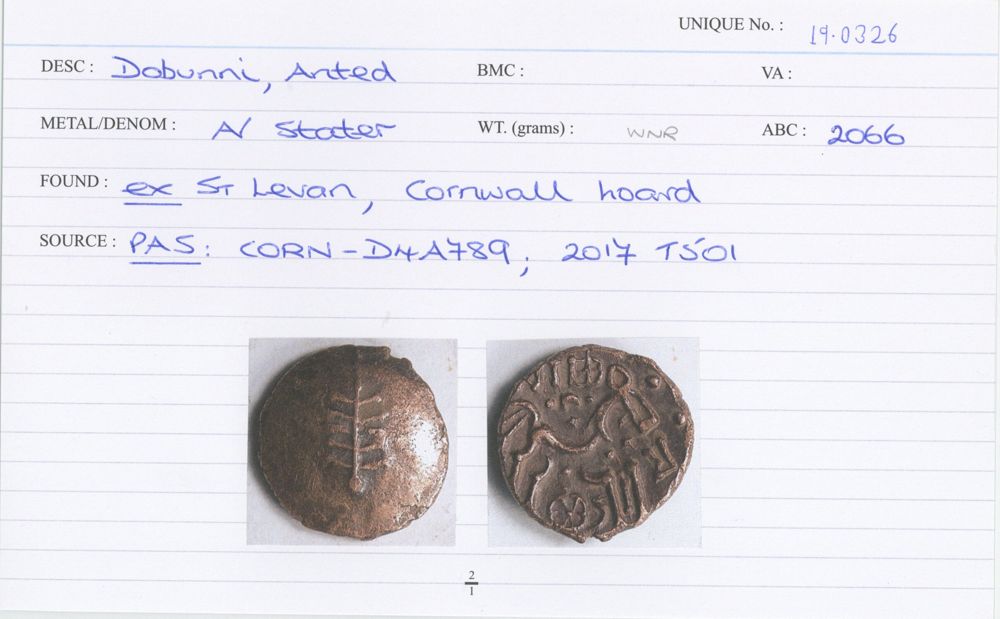 UNIQUE No. : 19.0326
DESC : Dobunni, Anted BMC : VA :
METAL/DENOM : A/ Stater WT. (grams) : WNR ABC : 2066
FOUND : ex St Levan, Cornwall hoard
SOURCE : PAS: CORN-D4A789; 2017 T501
2
1